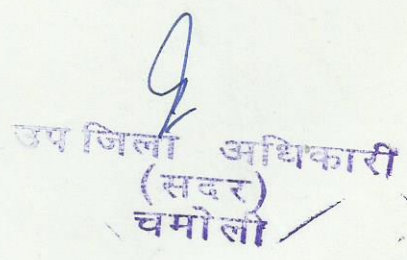 उप जिला अधिकारी
(सदर)
चमोली